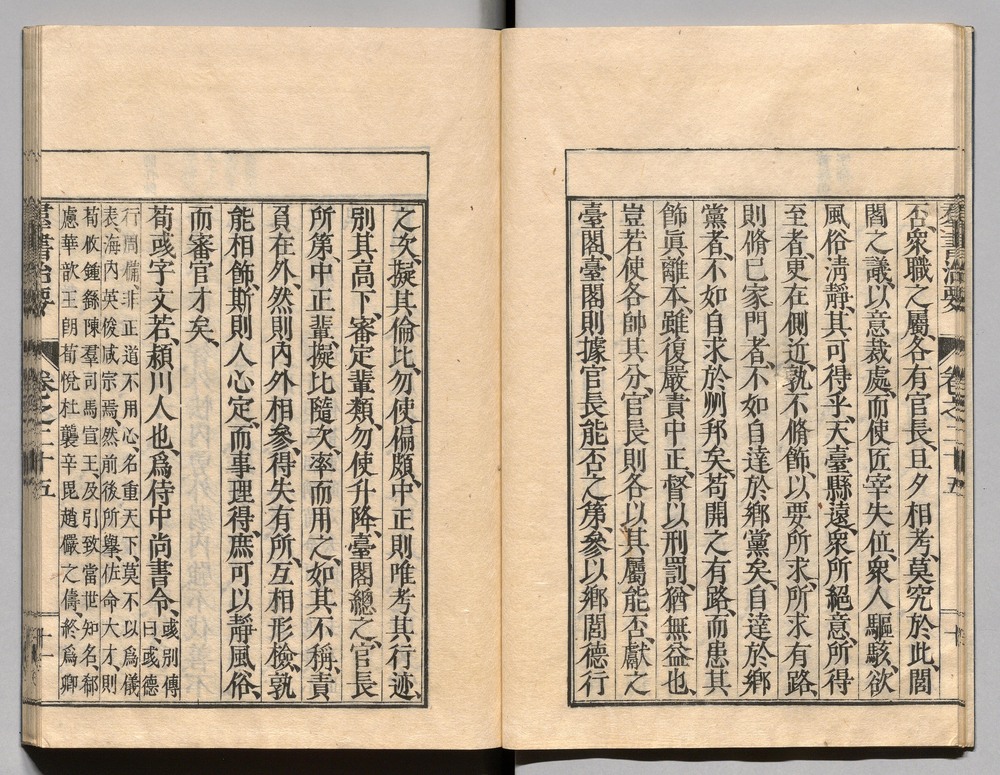 群書治要 卷之二十五 十
否、衆職之屬、各有官長、旦夕相考、莫究於此、閭
閻之議、以意裁處、而使匠宰失位、衆人驅駭、欲
風俗淸靜、其可得乎、天臺縣遠、衆所絕意、所得
至者、更在側近、孰不脩飾、以要所求、所求有路、
則脩已家門者、不如自達於鄉黨矣、自達於鄉
黨者、不如自求於州邦矣、苟開之有路、而患其
飾眞離本、雖復嚴責中正、督以刑罰、猶無益也、
豈若使各帥其分、官長則各以其屬能否、獻之
臺閣、臺閣則據官長能否之第、參以鄉閭德行
之次、擬其倫比、勿使偏頗、中正則唯考其行迹、
別其高下、審定輩類、勿使升降、臺閣總之、官長
所第、中正輩擬、比隨次率而用之、如其不稱、責
負在外、然則內外相參、得失有所、互相形檢、孰
能相飾、斯則人心定、而事理得、庶可以靜風俗、
而審官才矣、
荀彧字文若、潁川人也、爲侍中尚書令、彧別傳
曰、彧德
行周備、非正道不用心、名重天下、莫不以爲儀
表、海內英俊咸宗焉、然前後所擧、佐命大才、則
荀攸鍾繇陳羣司馬宣王、及引致當世知名、郗
慮華歆王朗荀悅杜襲辛毘趙儼之儔、終爲卿
羣書治要 卷之二十五 十一